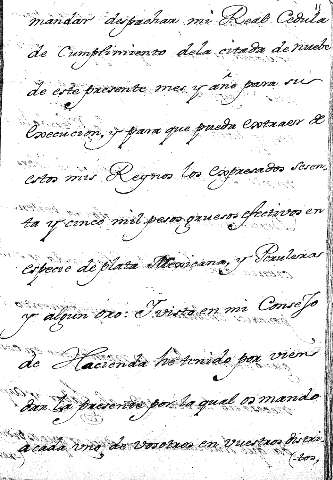 mandar despachar mi Real Cedula
de Cumplimiento dela citada de nuebe
de este presente mes, y año para su
execucion, y para que pueda extraer de
estos mis Reynos los expresados sesen-
ta y cinco mil pesos gruesos efectivos en
especie de plata Mexicana, y
y algun oro: Y visto en mi Consejo
de Hacienda he tenido por vien
dar la presente por la qual os mando
a cada uno de vosotros en vuestros distri-
tos,